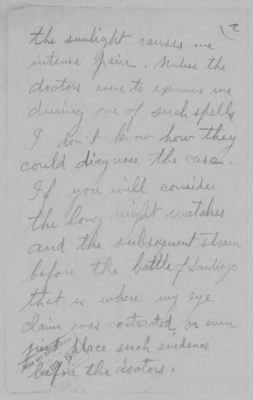 2
the sunlight causes me
intense pain. Unless the
doctors were to examine me
during one of such spells
I don't know how they
could diagnose the case.
If you will consider
the long night watches
and the subsequent strain
before the battle of Santiago
that is where my eye
claim was contracted, or even
just place such evidence
before the doctors.